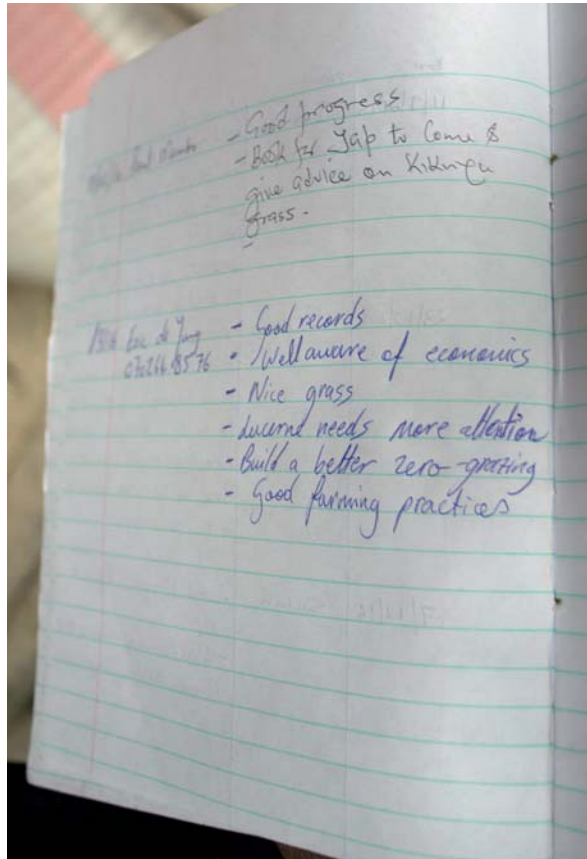 - Good progress
- Book for Jap to Come &
give advice on Kikuyu
grass.
-
- Good records
- Well aware of economics
- Nice grass
- Lucerne needs more attention
- Build a better zero-grazing
- Good farming practices